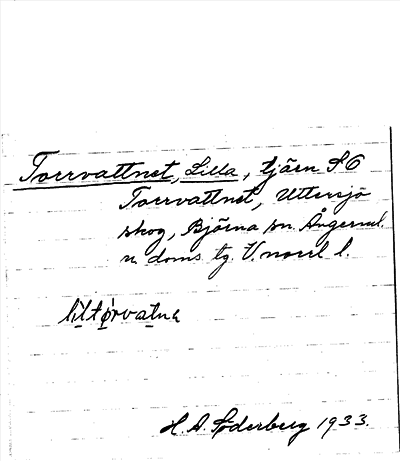 Torrvattnet, Lilla, tjärn S O
Torrvattnet, Uttersjö
skog, Björna sn. Ångerml.
n. doms. tg. V. norrl l.
lı̀ltǿrvatnɐ
H. A. Söderberg 1933.